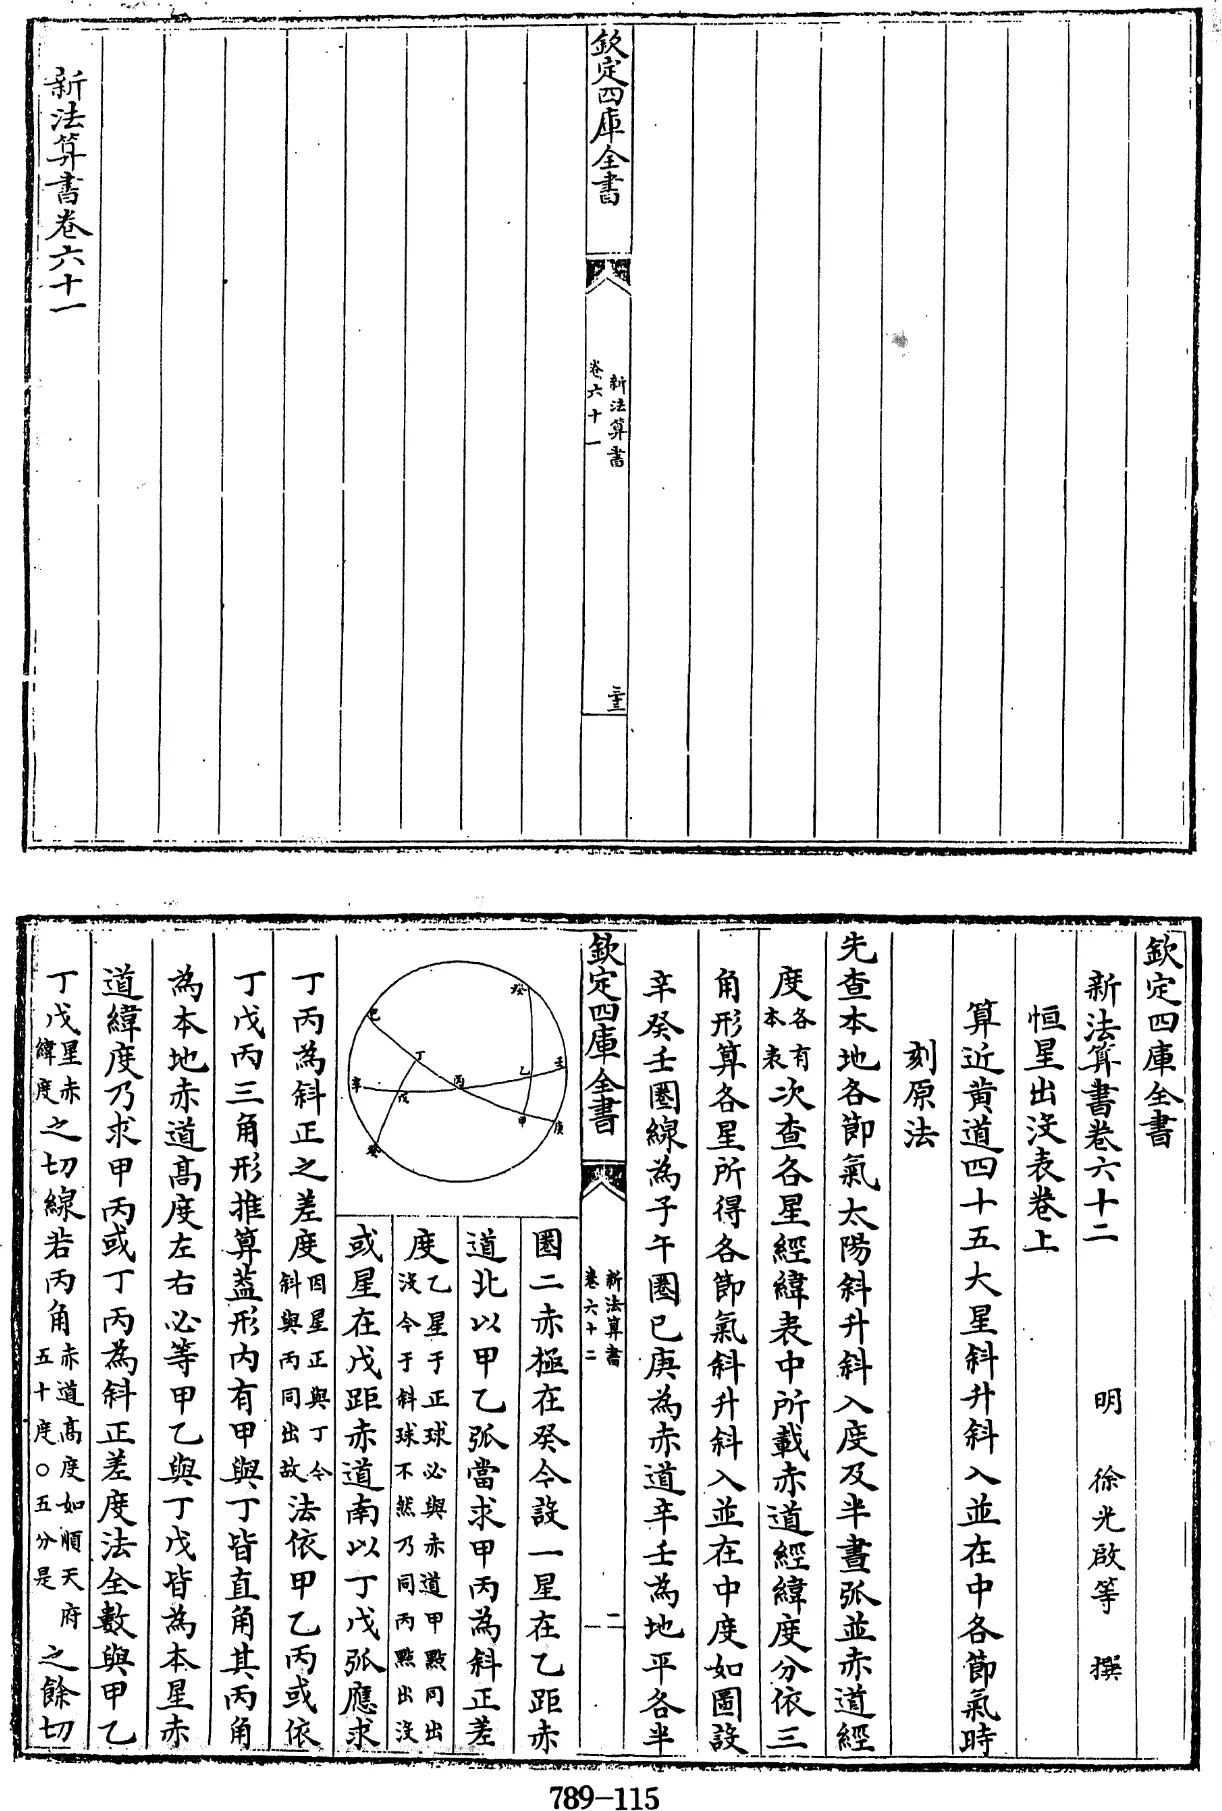 欽定四庫全書
新法算書
卷六十一
新法算書卷六十一
欽定四庫全書
新法算書卷六十二
明 徐光啟等 撰
恒星出没表卷上
算近黃道四十五大星斜升斜入並在中各節氣時
刻原法
先查本地各節氣太陽斜升斜入度及半晝弧並赤道經
度各有本表次查各星經緯表中所載赤道經緯度分依三
角形算各星所得各節氣斜升斜入並在中度如圖設
辛癸壬圈線為子午圈己庚為赤道辛壬為地平各半
欽定四庫全書
新法算書
卷六十二
癸
壬
己
丁
丙
乙
辛
戊
甲
庚
癸
圈二赤極在癸今設一星在乙距赤
道北以甲乙弧當求甲丙為斜正差
度乙星于正球必與赤道甲點同出没今于斜球不然乃同丙點出没
或星在戊距赤道南以丁戊弧應求
丁丙為斜正之差度因星正與丁今斜與丙同出故法依甲乙丙或依
丁戊丙三角形推算蓋形内有甲與丁皆直角其丙角
為本地赤道高度左右必等甲乙與丁戊皆為本星赤
道緯度乃求甲丙或丁丙為斜正差度法全數與甲乙
丁戊星赤緯度之切線若丙角赤道高度如順天府五十度〇五分是之餘切
789-115